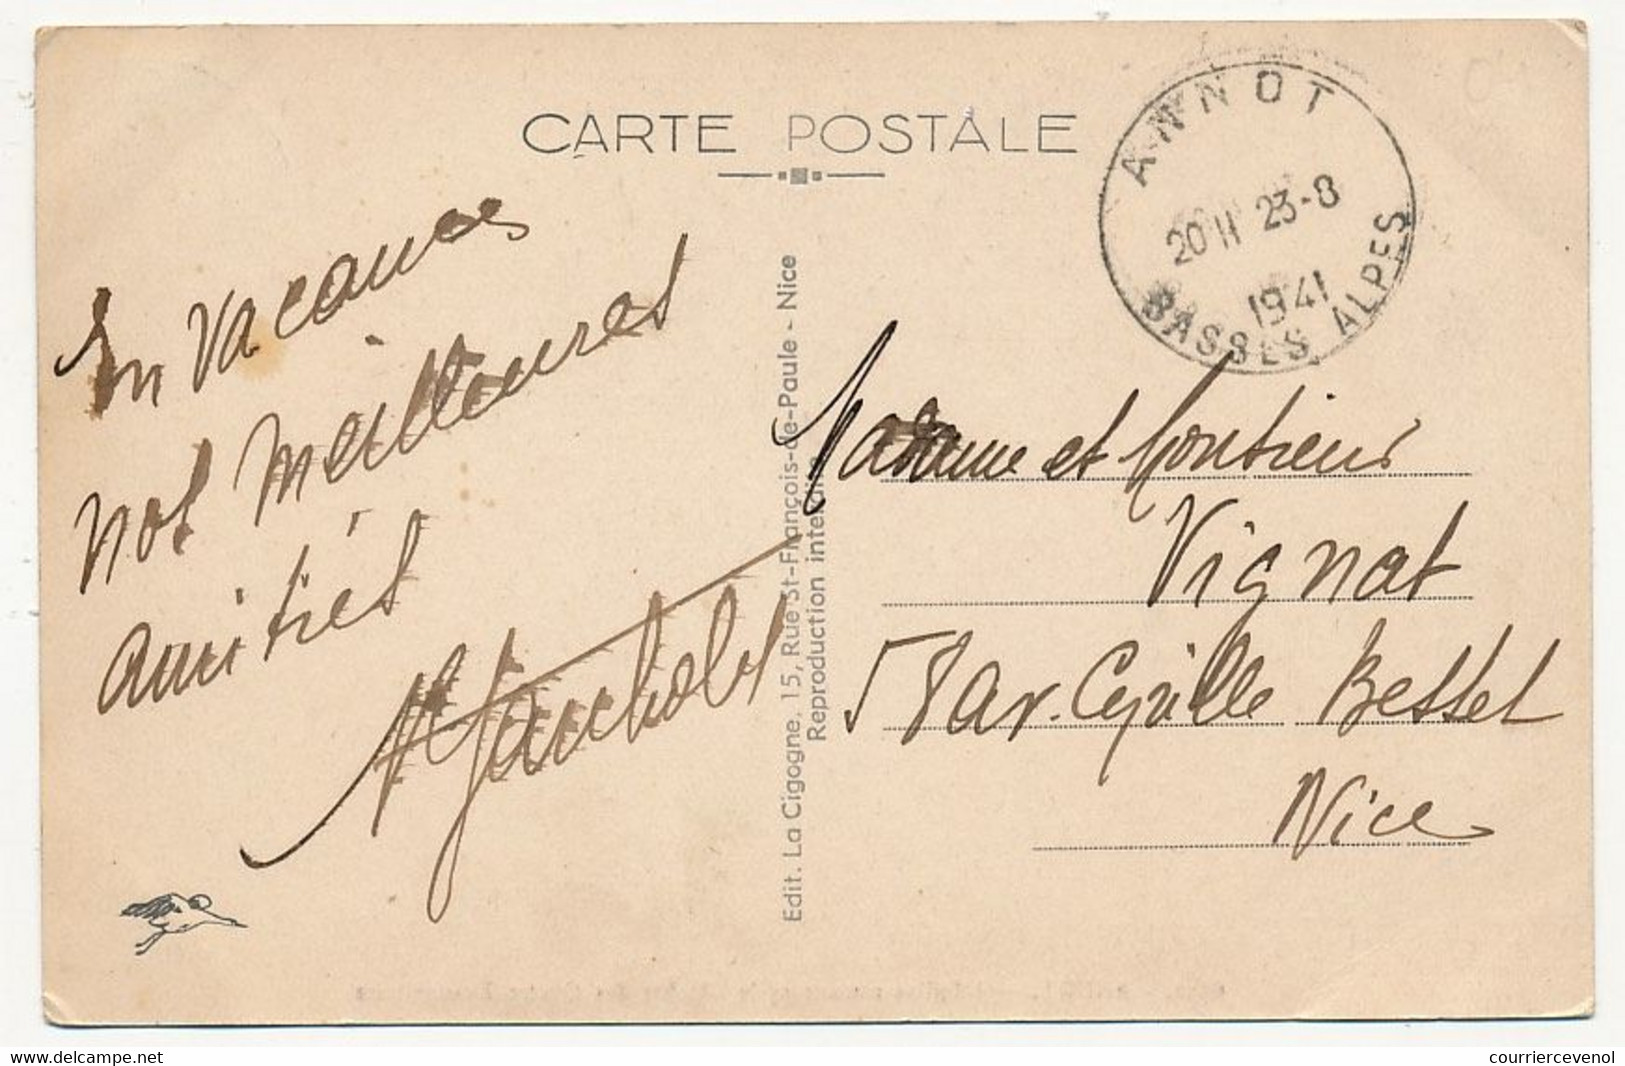 CARTE POSTALE
ANNOT
20 H 23-8
1941
BASSES ALPES
En vacances
nos meilleures
amitiés
Edit. La Cigogne, 15, Rue St-François-de-Paule - Nice
Reproduction interdite
Madame et Monsieur
Vignat
5 Bar. Cyrille Besset
Nice
courriercevenol